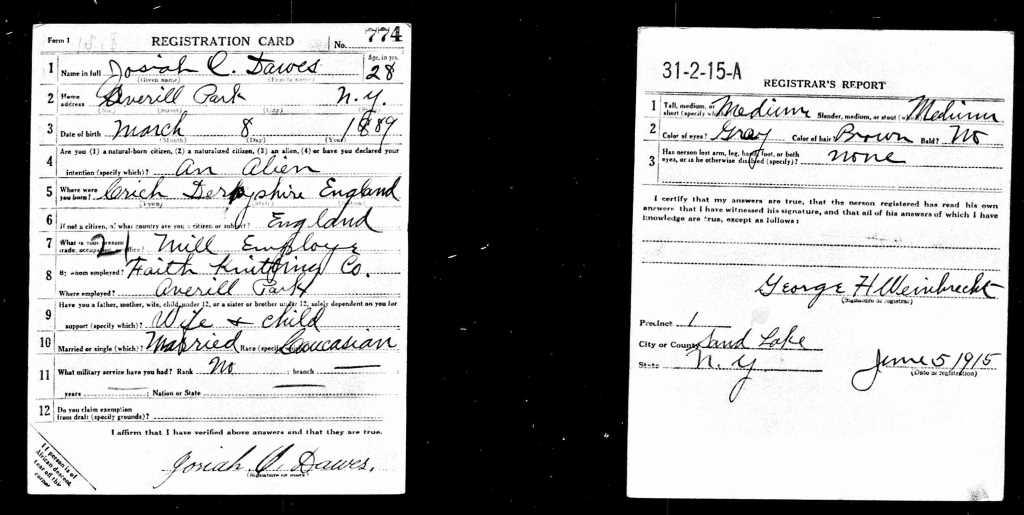 Form 1 REGISTRATION CARD No. 774
1 Name in full Josiah C. Dawes Age, in yrs. 28
(Given name) (Family name)
2 Home address Averill Park N.Y.
3 Date of birth March 8 1889
(Month) (Day) (Year)
4 Are you (1) a natural-born citizen, (2) a naturalized citizen, (3) an alien, (4) or have you declared your
intention (specify which)? An Alien
5 Where were you born? Crich Derbyshire England
6 If not a citizen, of what country are you a citizen or subject? England
7 What is your present trade, occupation, or office? 21 Mill Employe
8 By whom employed? Faith Knitting Co.
Where employed? Averill Park
9 Have you a father, mother, wife, child under 12, or a sister or brother under 12, solely dependent on you for
support (specify which)? Wife + child
10 Married or single (which)? Married Race (specify which)? Caucasian
11 What military service have you had? Rank No ; branch
years ; Nation or State
12 Do you claim exemption
from draft (specify grounds)?
I affirm that I have verified above answers and that they are true.
Josiah C. Dawes.
(Signature or mark)
If person is of
African descent,
tear off this
corner
31-2-15-A
REGISTRAR'S REPORT
1 Tall, medium, or short (specify which)? Medium Slender, medium, or stout (which)? Medium
2 Color of eyes? Gray Color of hair? Brown Bald? No
3 Has person lost arm, leg, hand, foot, or both
eyes, or is he otherwise disabled (specify)? none
I certify that my answers are true, that the person registered has read his own
answers, that I have witnessed his signature, and that all of his answers of which I have
knowledge are true, except as follows:
George H Weinbrecht
(Signature of registrar)
Precinct 1
City or County Sand Lake
State N.Y June 5 1915
(Date of registration)